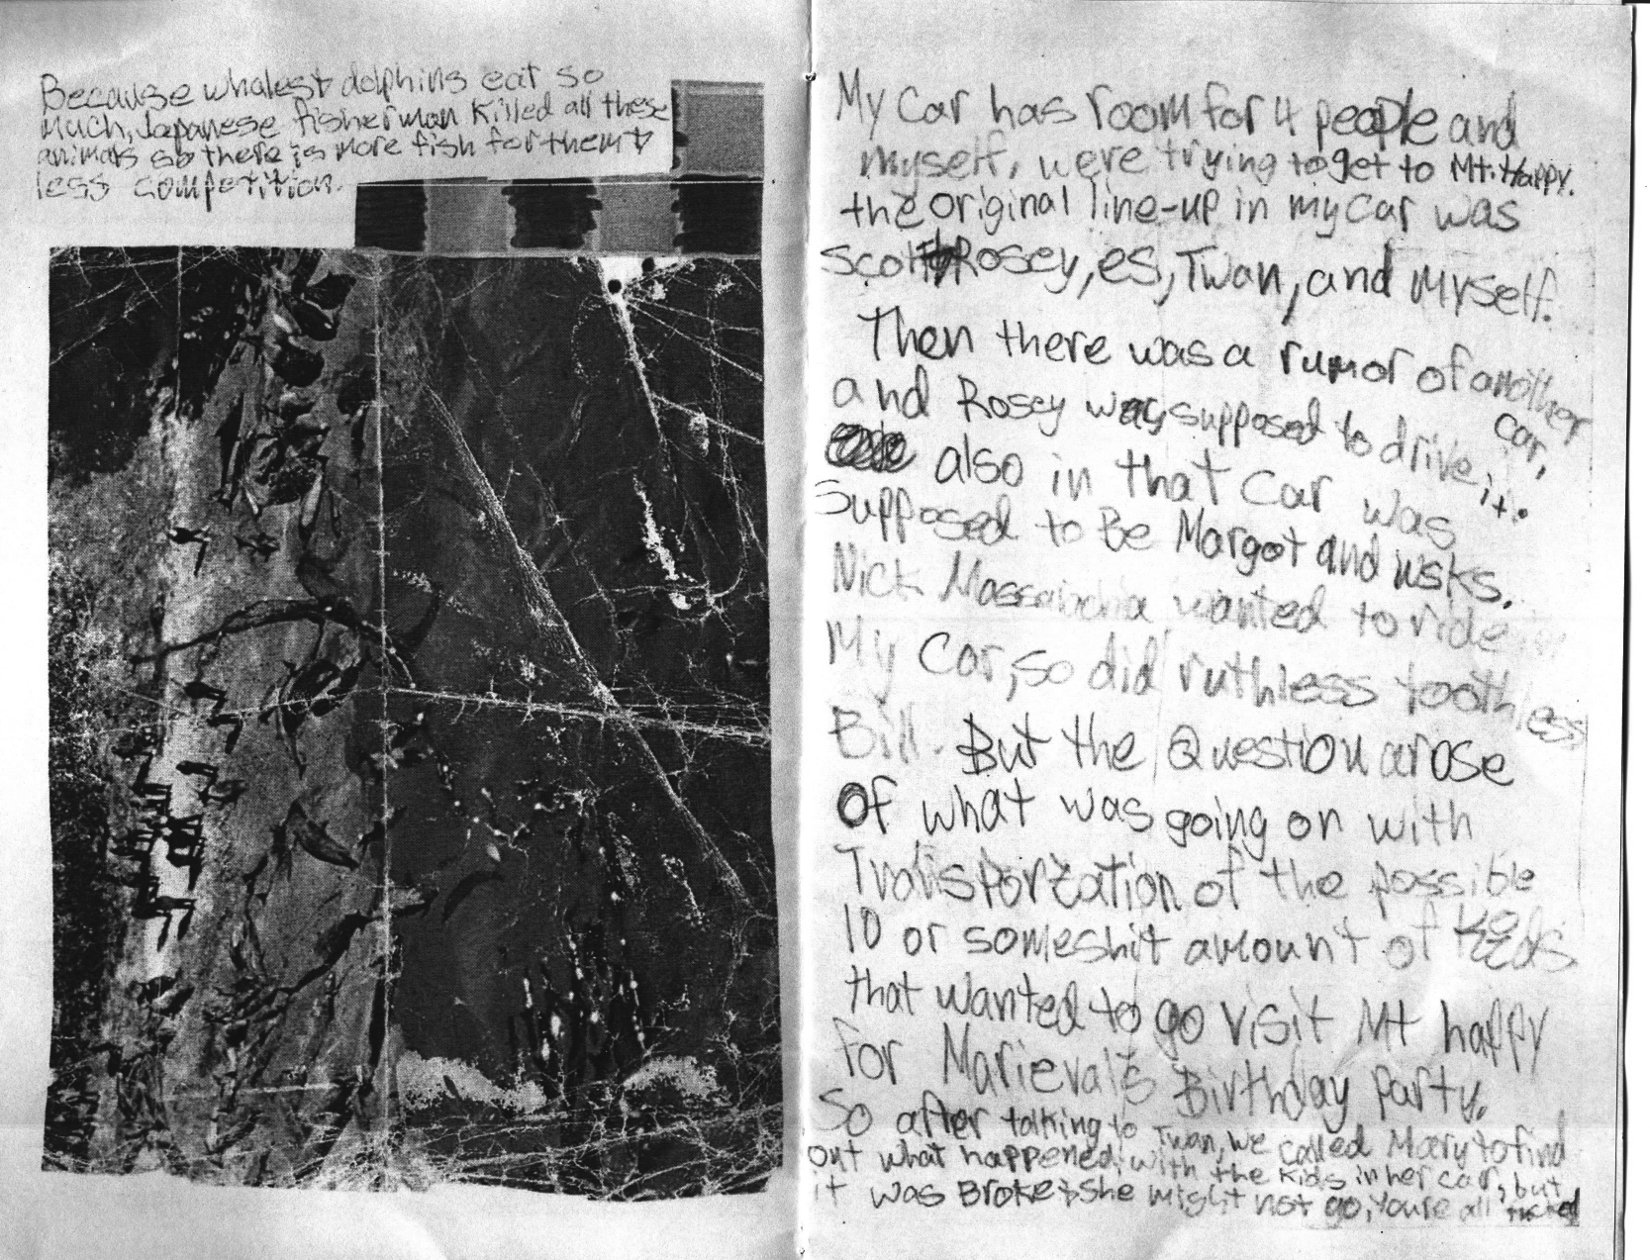 Because whales & dolphins eat so
much, Japanese fisherman killed all these
animals so there is more fish for them &
less competition.
My car has room for 4 people and
myself, were trying to get to Mt. Happy.
the original line-up in my car was
Scott, Rosey, es, Twan, and myself.
Then there was a rumor of another
car,
and Rosey was supposed to drive it.
also in that car was
supposed to Be Margot and wsks.
Nick wanted to ride
My Car, so did ruthless toothless
Bill. But the Question arose
Of what was going on with
Transportation of the possible
10 or someshit amount of Kids
that wanted to go visit Mt happy
for Marieval's Birthday Party.
So after talking to Twan, we called Mary to find
out what happened with the kids in her car, but
it was Broke & she might not go, you're all